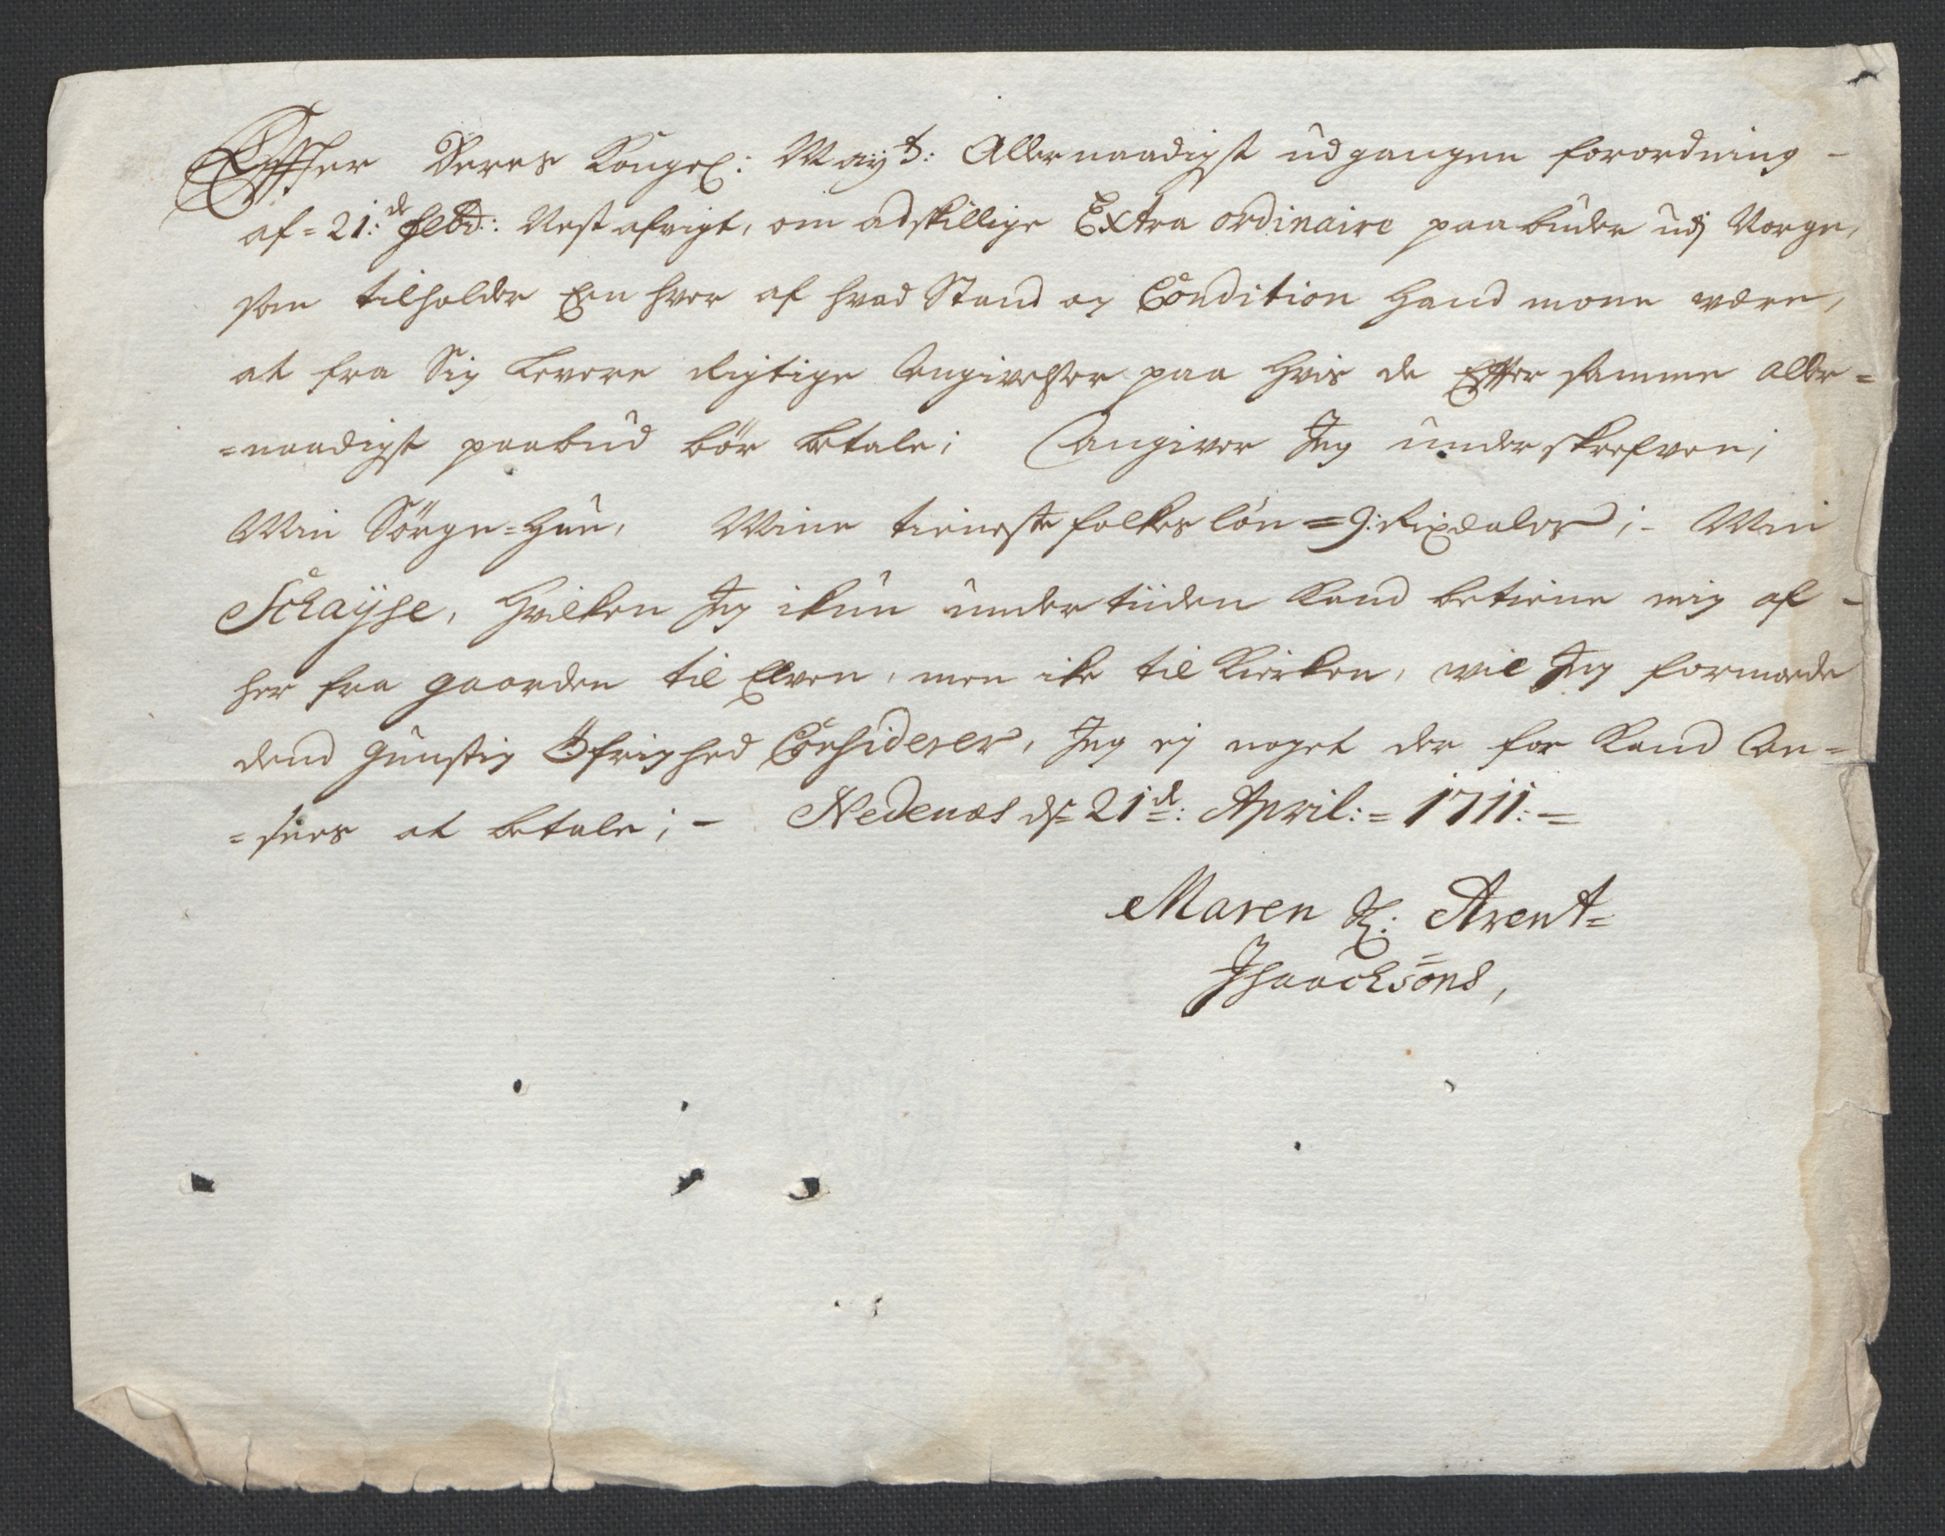 Effter Deres Kongel: May<sup>ts</sup>: Allernaadigst udgangen forordning -
af = 21:<sup>de</sup> febr: Nest afvigt, om adskillige Extra ordinaire paabuder udj Norge,
som tilholder Een hver af hvad Stand og Condition Hand monne være,
at fra Sig Levere Rigtige Angivelser paa Hvis de Effter samme Aller=
=naadigst paabud bør betale; Angiver Jeg underskrefven;
Min Sörge=Hue, Mine tieneste folkes lön = 9: Rixdaler; - Min
Schayse, Hvilken Jeg ikun undertiiden Kand betiene mig af -
her fra gaarden til Elven, men ike til Kirken, vil Jeg formode
dend gunstig Öfrighed Considerer, Jeg ej noget der for Kand An=
=sees at betale; - Nedenæs d: 21<sup>de</sup>: April: = 1711: =
Maren Sl: Arent=
Jsaacksöns,